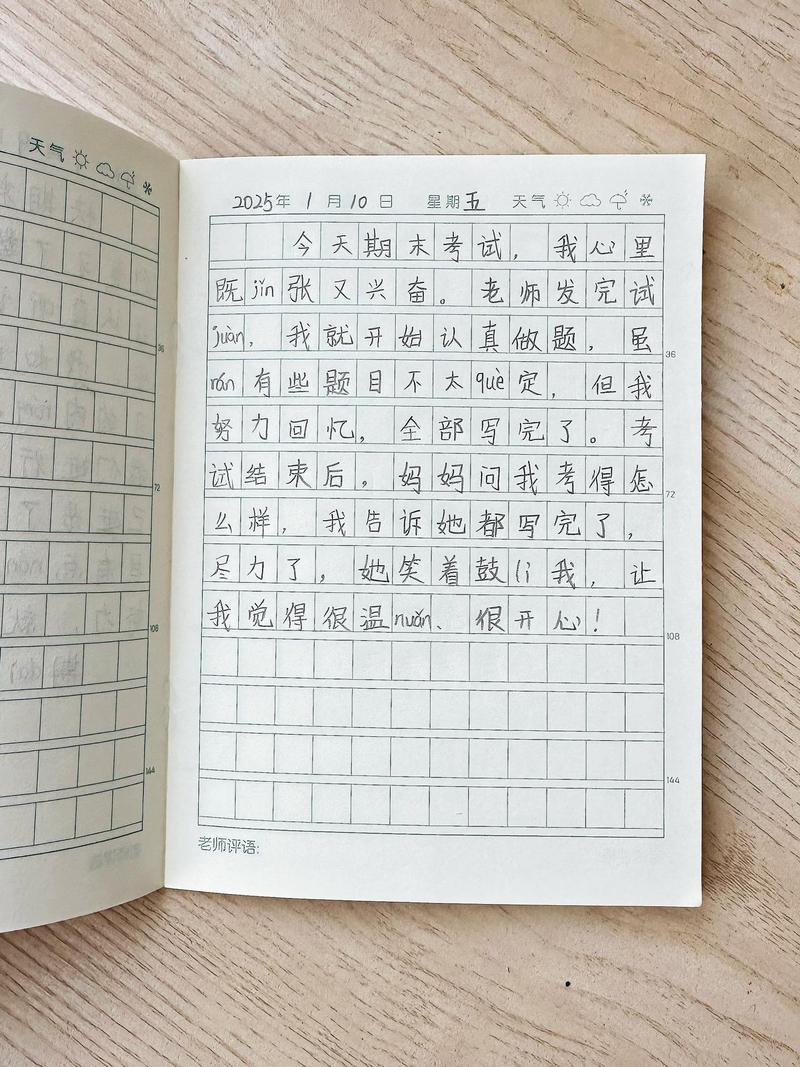 天气
36
72
108
144
2025年 1月10日 星期五 天气
今天期末考试，我心里
既jǐn张又兴奋。老师发完试
juàn，我就开始认真做题，虽
rán有些题目不太què定，但我
努力回忆，全部写完了。考
试结束后，妈妈问我考得怎
么样，我告诉她都写完了，
尽力了，她笑着鼓lì我，让
我觉得很温nuǎn、很开心！
36
72
108
144
老师评语：